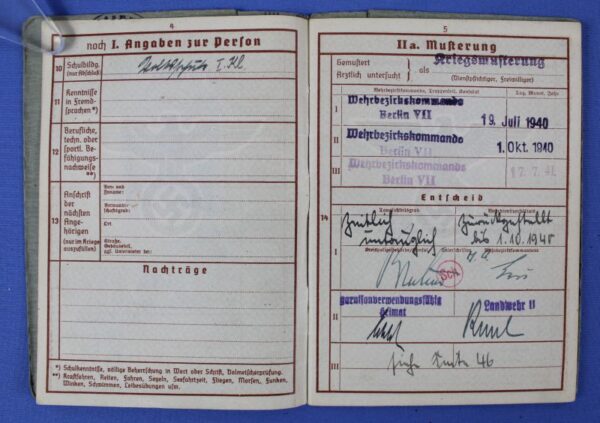 4
noch I. Angaben zur Person
10 Schulbildg. (nur Abschluß)
Volksschule I. Kl.
11 Kenntnisse in Fremdsprachen *)
12 Berufliche, techn. oder sportl. Befähigungsnachweise **)
13 Anschrift der nächsten Angehörigen (nur im Kriege auszufüllen)
Vor- und Zuname:
Verwandtschaftsgrad:
Ort
Straße,
Nachträge
*) Schulkenntnisse, völlige Beherrschung in Wort oder Schrift, Dolmetscherprüfung.
**) Kraftfahren, Reiten, Fahren, Segeln, Seefahrtzeit, Fliegen, Morsen, Funken,
Winken, Schwimmen, Leibesübungen usw.
5
IIa. Musterung
Gemustert
Ärztlich untersucht
als
Kriegsmusterung
(Dienstpflichtiger, Freiwilliger)
Tag, Monat, Jahr
I
Wehrbezirkskommando
Berlin VII
19. Juli 1940
II
Wehrbezirkskommando
Berlin VII
1. Okt. 1940
III
Wehrbezirkskommando
Berlin VII
17. 7. 41
Entscheid
14
I
zeitlich
untauglich
zurückgestellt
bis 1.10.1940
II
garnisonverwendungsfähig
Heimat
Landwehr II
III
siehe Seite 46